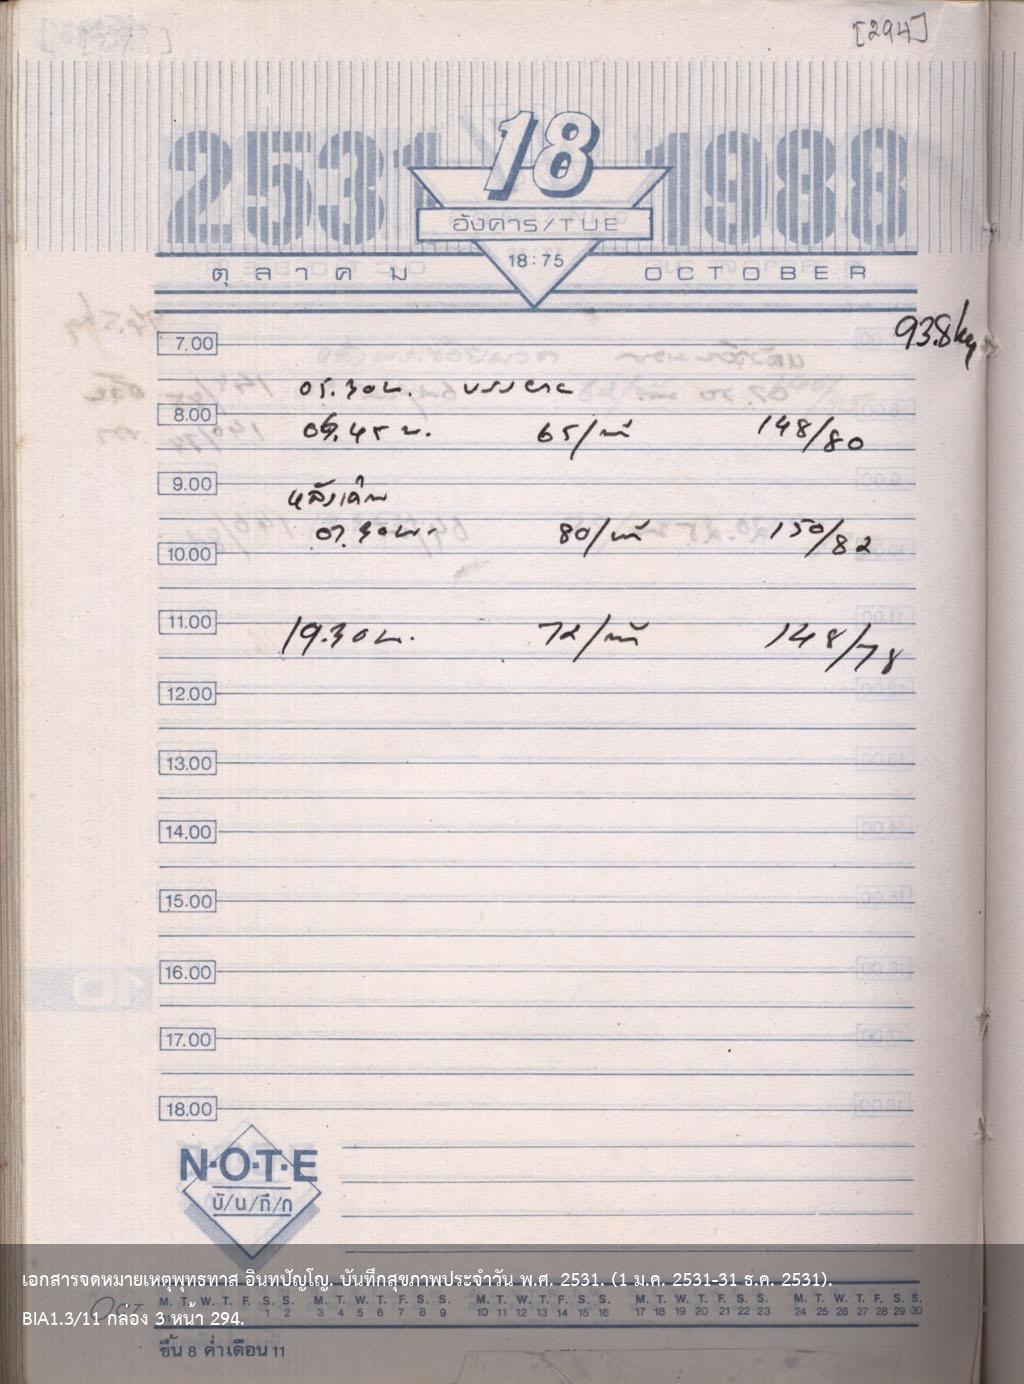 [294]
2531 18 1988
อังคาร/TUE
18:75
ตุลาคม OCTOBER
93.8 kg
7.00
05.30 น. บรรยาย
8.00
06.45 น. 65/นาที 148/80
9.00
หลังเดิน
07.30 น. 80/นาที 150/82
10.00
11.00
19.30 น. 72/นาที 148/78
12.00
13.00
14.00
15.00
16.00
17.00
18.00
N·O·T·E
บั/น/ทึ/ก
เอกสารจดหมายเหตุพุทธทาส อินทปัญโญ. บันทึกสุขภาพประจำวัน พ.ศ. 2531. (1 ม.ค. 2531-31 ธ.ค. 2531).
M. T. W. T. F. S. S. M. T. W. T. F. S. S. M. T. W. T. F. S. S. M. T. W. T. F. S. S. M. T. W. T. F. S. S.
1 2 3 4 5 6 7 8 9 10 11 12 13 14 15 16 17 18 19 20 21 22 23 24 25 26 27 28 29 30
BIA1.3/11 กล่อง 3 หน้า 294.
ขึ้น 8 ค่ำ เดือน 11